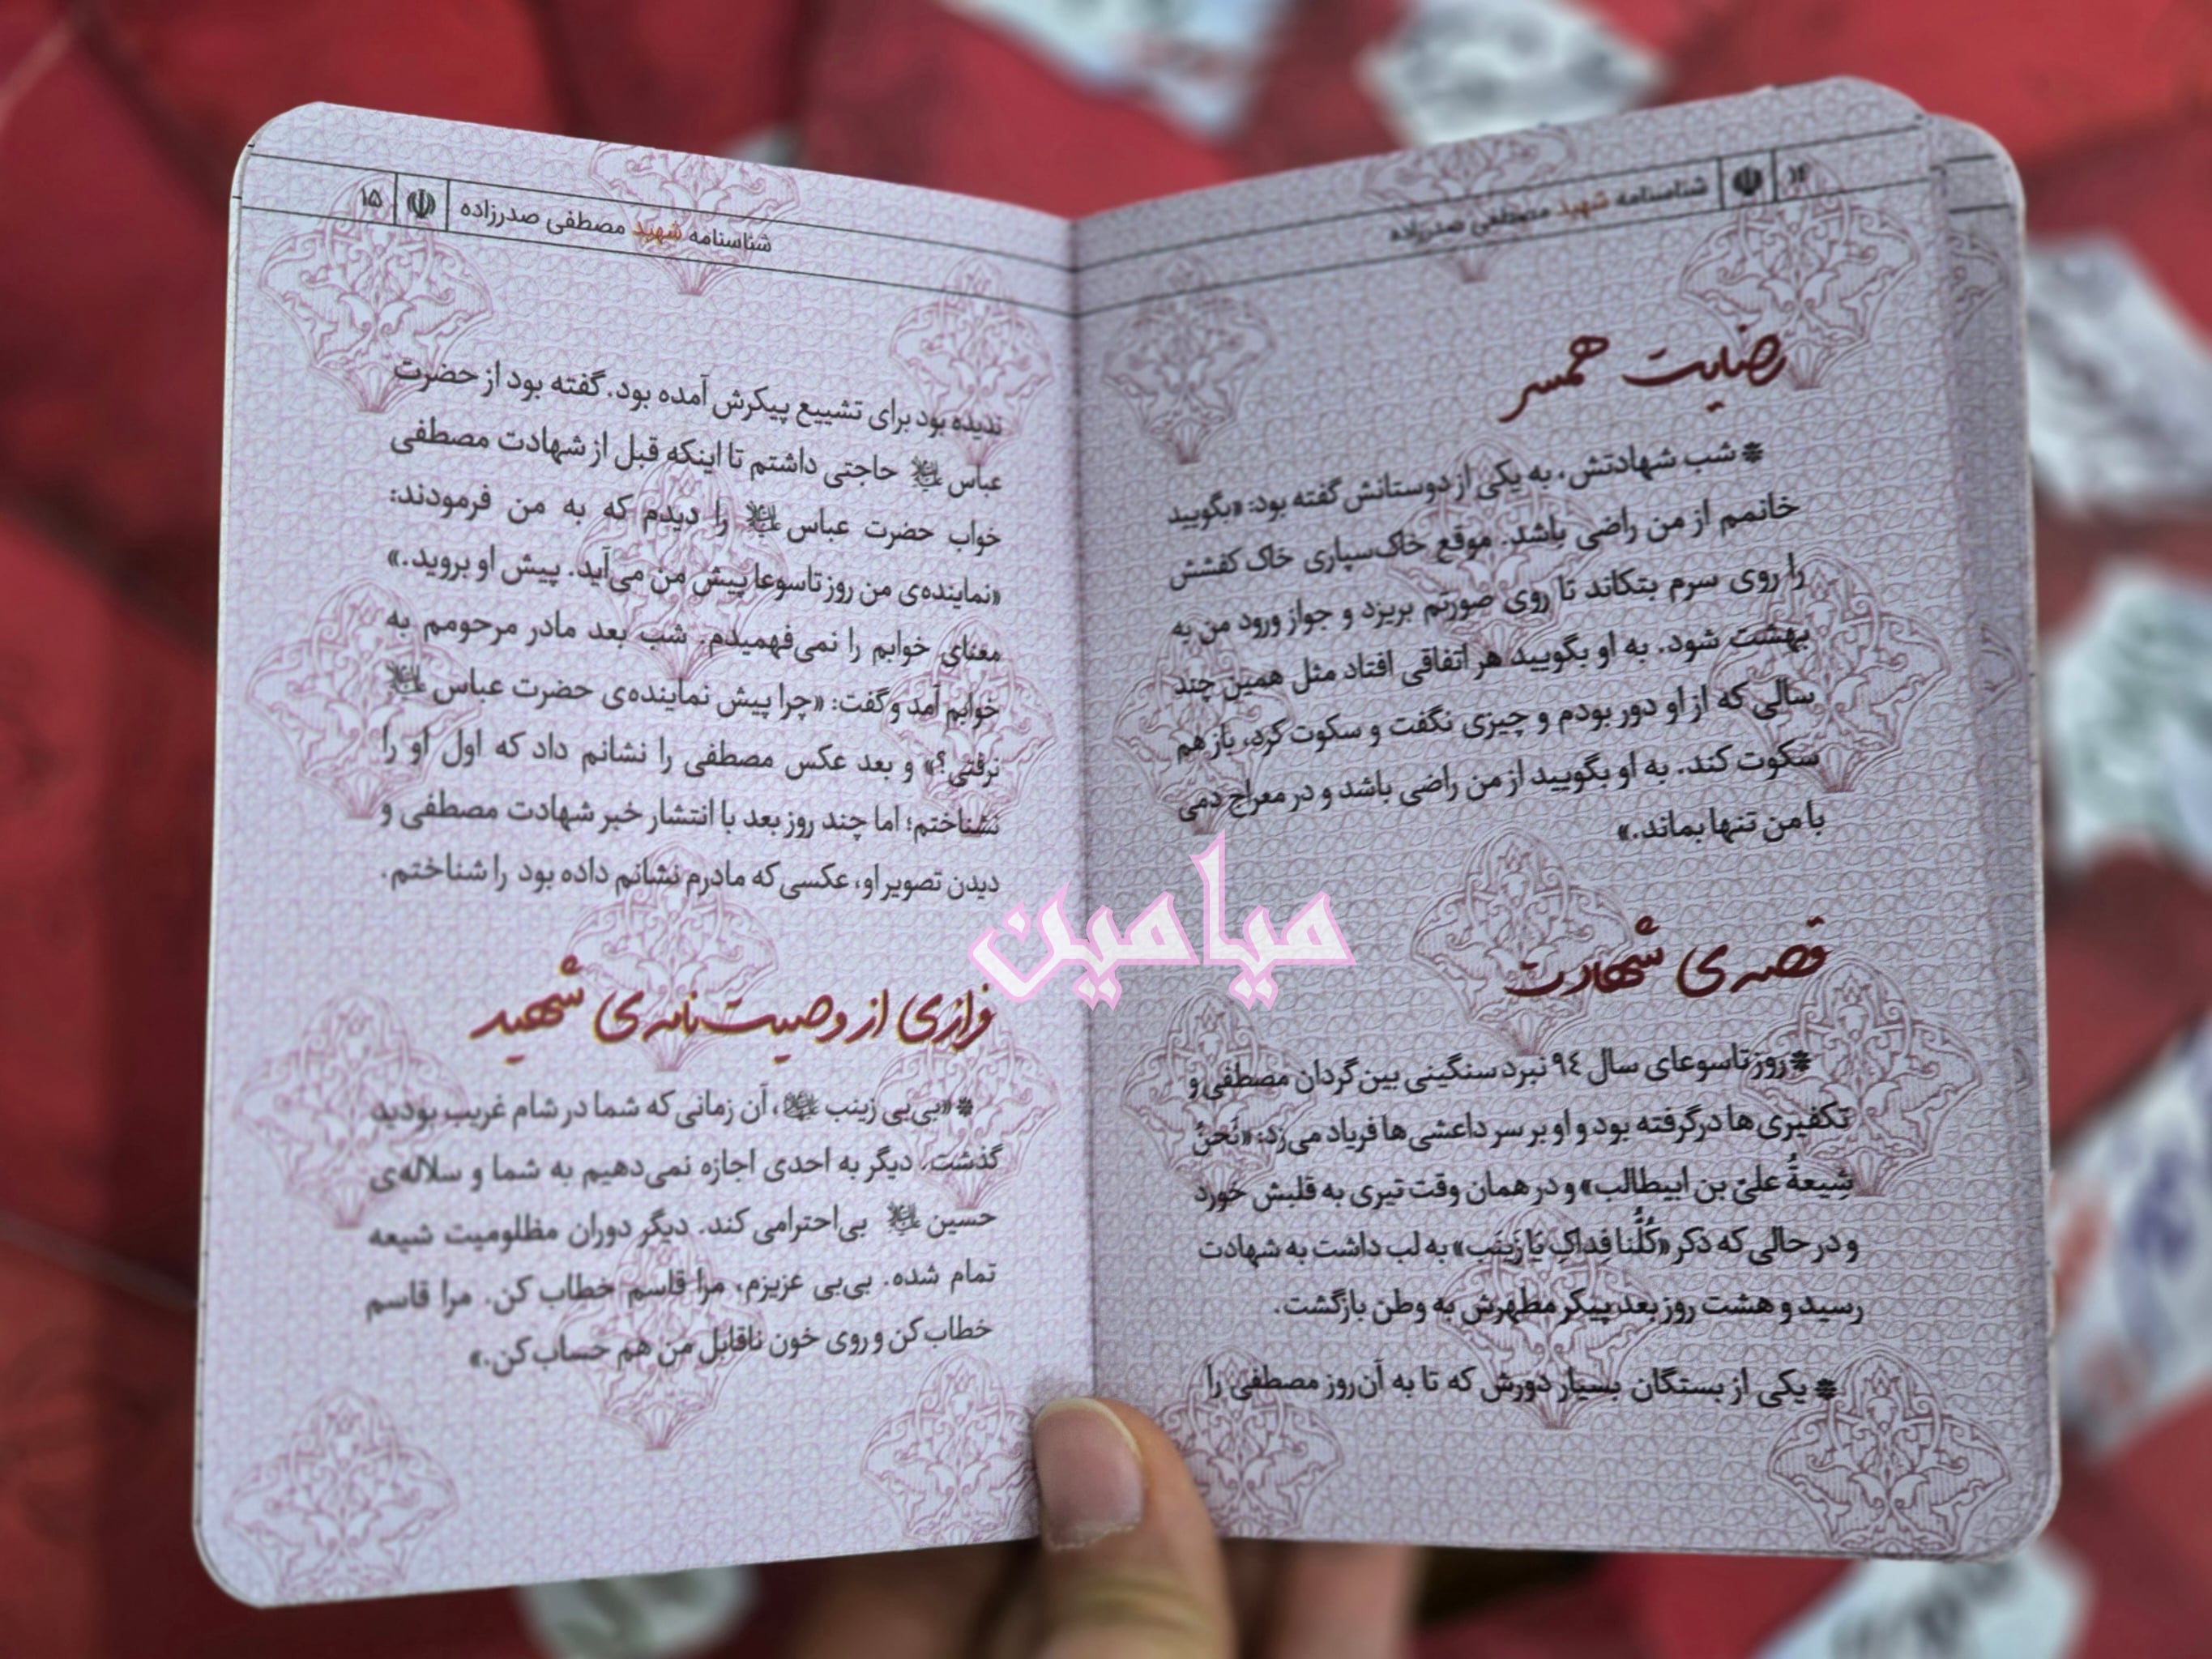 ۱۴ شناسنامه شهید مصطفی صدرزاده
رضایت همسر
* شب شهادتش، به یکی از دوستانش گفته بود: «بگویید
خانمم از من راضی باشد. موقع خاک‌سپاری خاک کفشش
را روی سرم بتکاند تا روی صورتم بریزد و جواز ورود من به
بهشت شود. به او بگویید هر اتفاقی افتاد مثل همین چند
سالی که از او دور بودم و چیزی نگفت و سکوت کرد، باز هم
سکوت کند. به او بگویید از من راضی باشد و در معراج دمی
با من تنها بماند.»
قصه‌ی شهادت
* روز تاسوعای سال ۹٤ نبرد سنگینی بین گردان مصطفی و
تکفیری‌ها درگرفته بود و او بر سر داعشی‌ها فریاد می‌زد: «نَحنُ
شِیعةُ علیّ بن ابیطالب» و در همان وقت تیری به قلبش خورد
و در حالی که ذکر «کُلُّنا فِداكِ یَا زَینَب» به لب داشت به شهادت
رسید و هشت روز بعد پیکر مطهرش به وطن بازگشت.
* یکی از بستگان بسیار دورش که تا به آن‌روز مصطفی را
شناسنامه شهید مصطفی صدرزاده ۱۵
ندیده بود برای تشییع پیکرش آمده بود. گفته بود از حضرت
عباس علیه‌السلام حاجتی داشتم تا اینکه قبل از شهادت مصطفی
خواب حضرت عباس علیه‌السلام را دیدم که به من فرمودند:
«نماینده‌ی من روز تاسوعا پیش من می‌آید. پیش او بروید.»
معنای خوابم را نمی‌فهمیدم. شب بعد مادر مرحومم به
خوابم آمد و گفت: «چرا پیش نماینده‌ی حضرت عباس علیه‌السلام
نرفتی؟» و بعد عکس مصطفی را نشانم داد که اول او را
نشناختم؛ اما چند روز بعد با انتشار خبر شهادت مصطفی و
دیدن تصویر او، عکسی که مادرم نشانم داده بود را شناختم.
فرازی از وصیت‌نامه‌ی شهید
* «بی‌بی زینب، آن زمانی که شما در شام غریب بودید
گذشت، دیگر به احدی اجازه نمی‌دهیم به شما و سلاله‌ی
حسین علیه‌السلام بی‌احترامی کند. دیگر دوران مظلومیت شیعه
تمام شده. بی‌بی عزیزم، مرا قاسم خطاب کن. مرا قاسم
خطاب کن و روی خون ناقابل من هم حساب کن.»
میامین